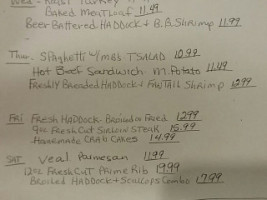 Wed - Roast Turkey
Baked Meatloaf 11.49
Beer-Battered Haddock + B.B. Shrimp 11.99
Thur - Spaghetti w/MBs TSALAD 10.99
Hot Beef Sandwich M. Potato 11.49
Freshly Breaded Haddock + Fantail Shrimp 12.99
FRI Fresh Haddock - Broiled or Fried 12.99
9oz Fresh Cut Sirloin Steak 15.99
Homemade Crab Cakes 14.99
SAT Veal Parmesan 11.99
12oz Fresh Cut Prime Rib 19.99
Broiled Haddock + Scallops Combo 17.99